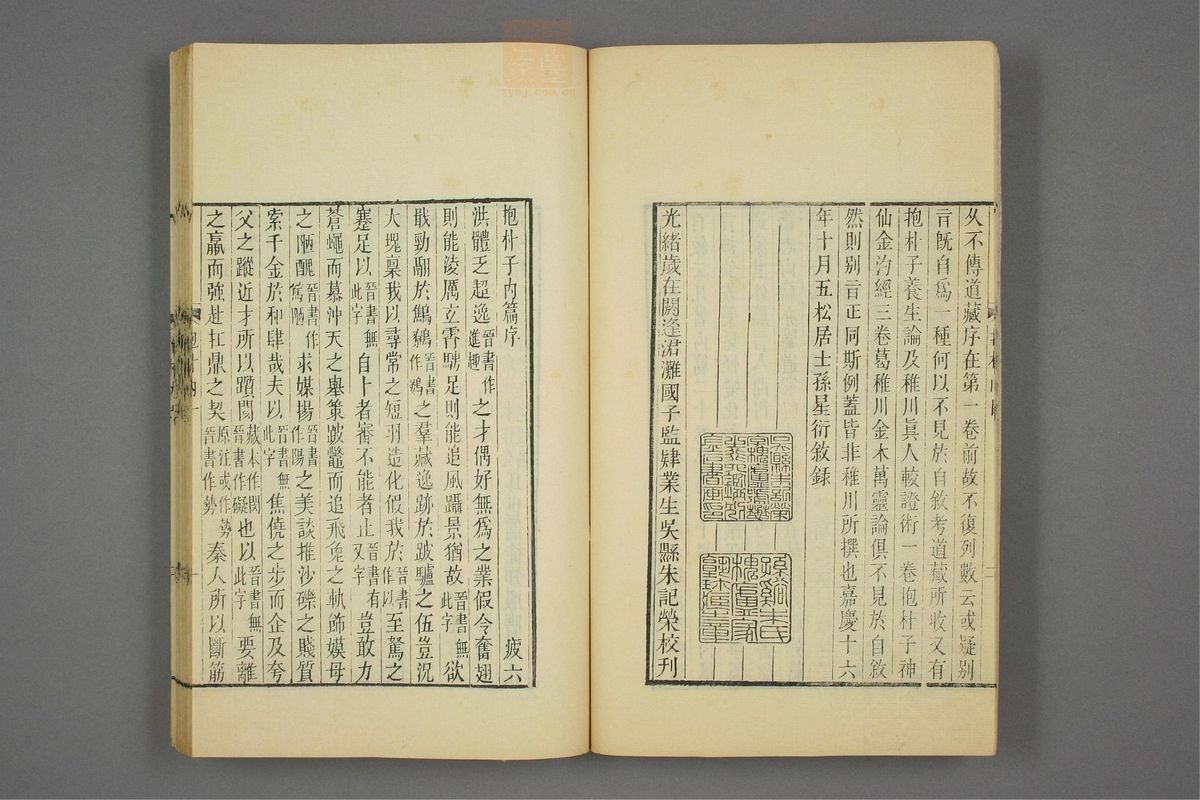 久不傳道藏序在第一卷前故不復列數云或疑别
言旣自爲一種何以不見於自敘考道藏所收又有
抱朴子養生論及稚川眞人較證術一卷抱朴子神
仙金汋經三卷葛稚川金木萬靈論俱不見於自敘
然則别言正同斯例蓋皆非稚川所撰也嘉慶十六
年十月五松居士孫星衍敘録
光緒歲在閼逢涒灘國子監肄業生吳縣朱記榮校刊
抱朴子内篇序 疲六
洪體乏超逸晉書作進趣之才偶好無爲之業假令奮翅
則能淩厲立霄騁足則能追風躡景猶故晉書無此字欲
戢勁翮於鷦鷃晉書作鷃之羣藏逸跡於跛驢之伍豈況
大塊稟我以尋常之短羽造化假我於晉書作以至駑之
蹇足以晉書無此字自卜者審不能者止晉書有又字豈敢力
蒼蠅而慕沖天之舉策跛鼈而追飛兔之軌飾嫫母
之陋醜晉書作篤陋求媒揚晉書作陽之美談推沙礫之賤質
索千金於和肆哉夫以晉書無此字焦僥之步而企及夸
父之蹤近才所以躓閡藏本作閡晉書作礙也以晉書無此字要離
之羸而強赴扛鼎之契原注或作勢晉書作勢秦人所以斷筋